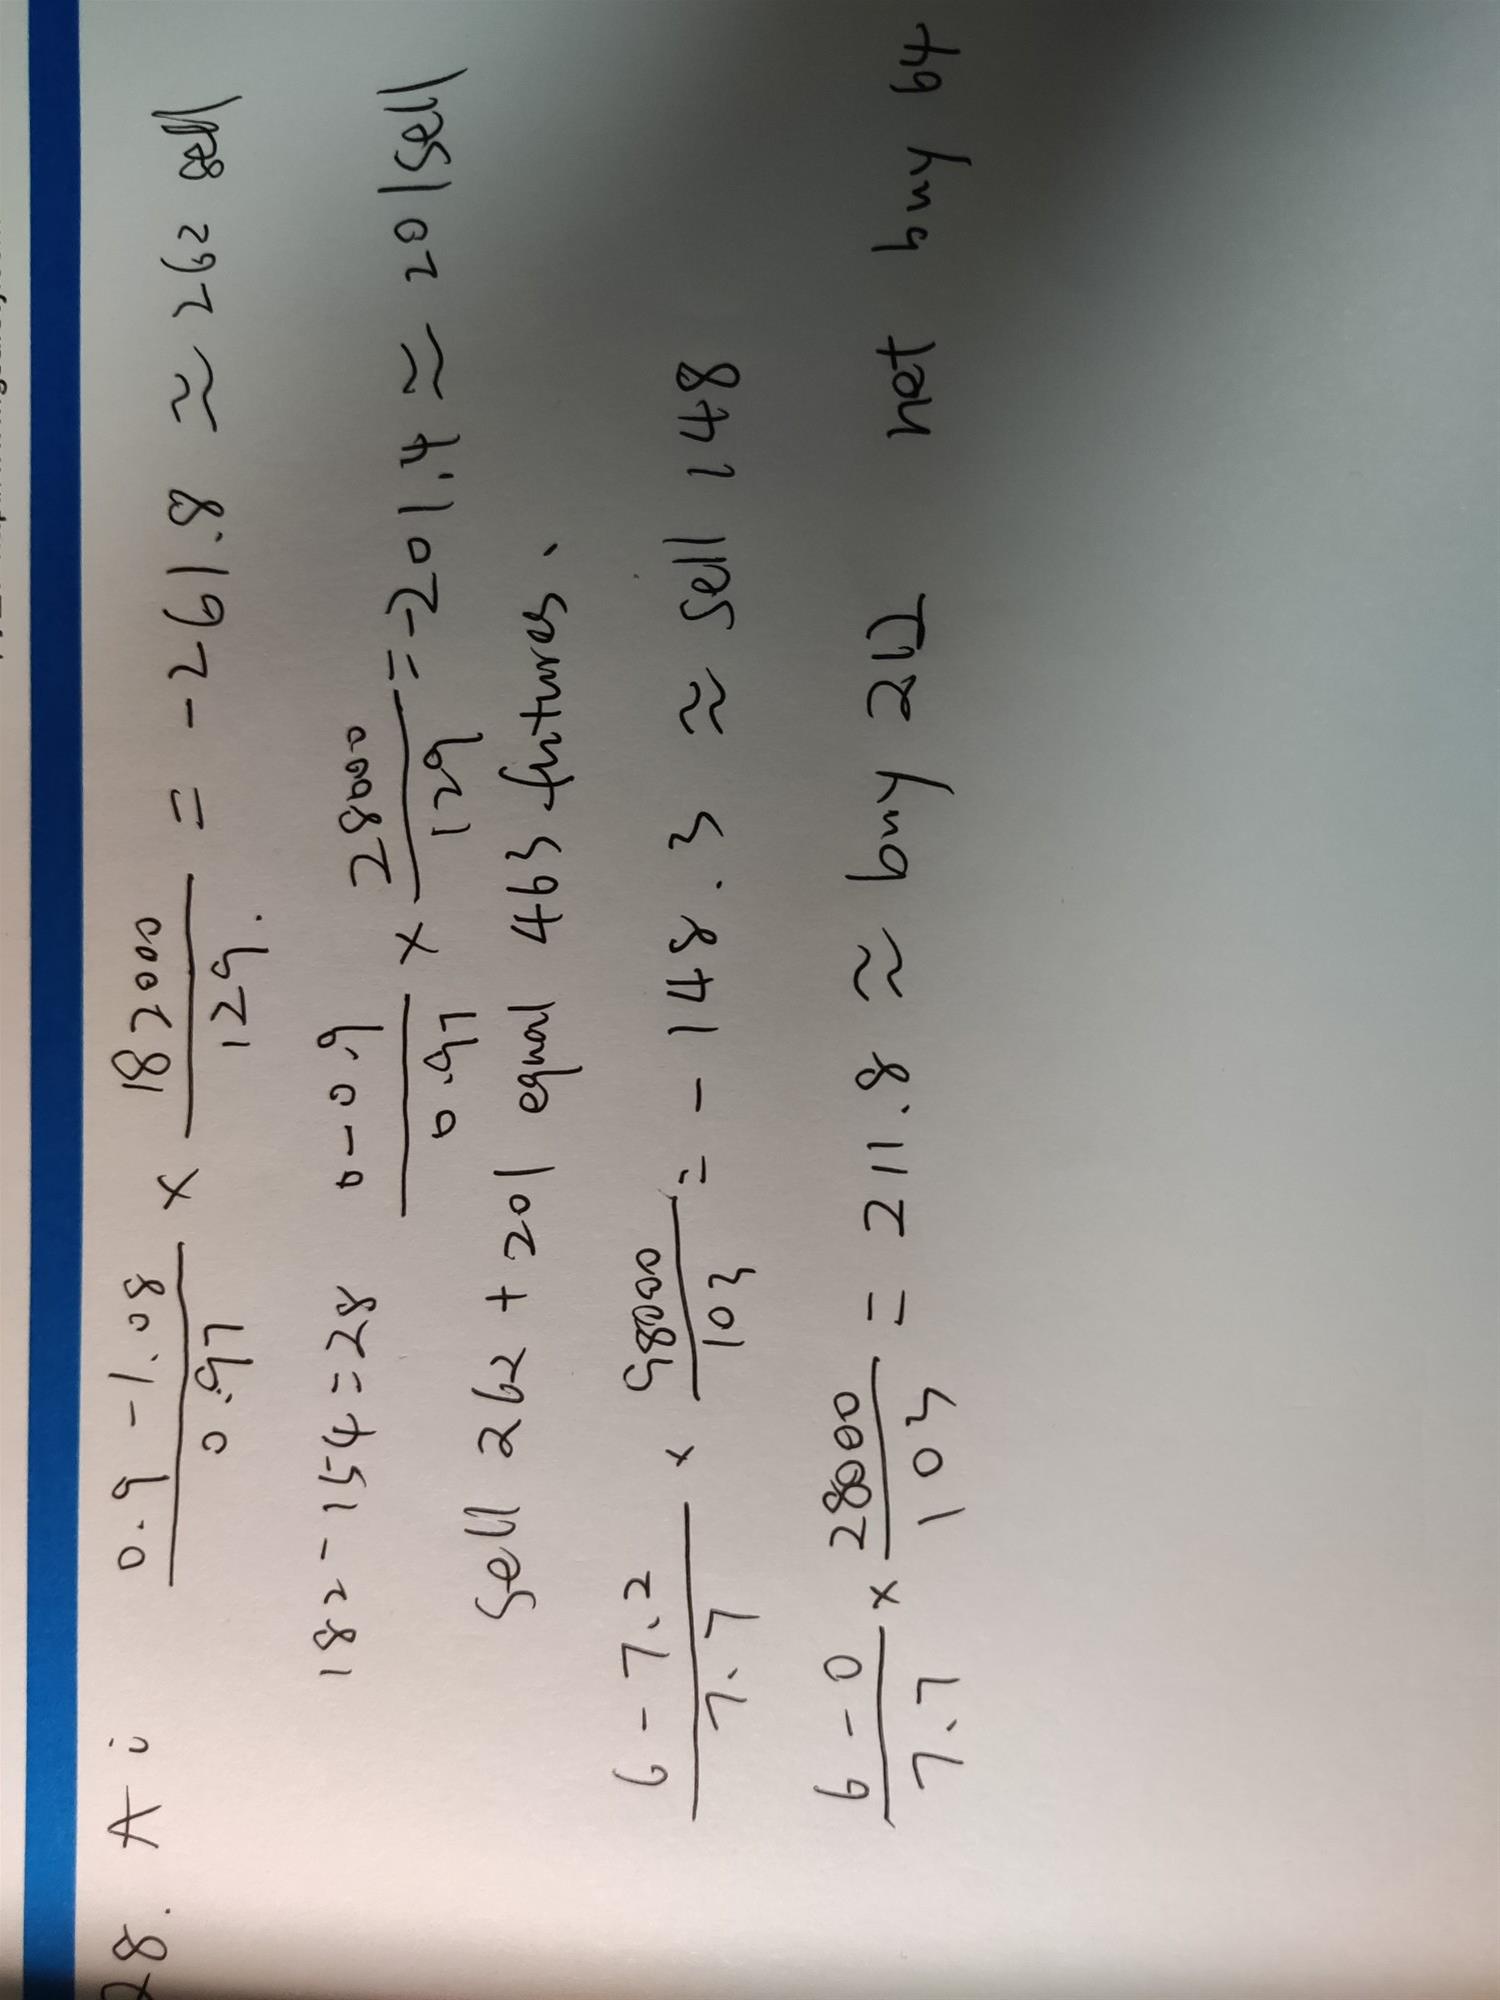 28. A :
0.9 - 1.08 / 0.97 × 182000 / 129. = - 261.8 ≈ 262 sell
182 - 154 = 28 0-0.9 / 0.97 × 28000 / 129 = -201.4 ≈ 201 sell
sell 262 + 201 equal 463 futures.
6 - 7.2 / 7.7 × 98000 / 103 = - 148.3 ≈ sell 148
6 - 0 / 7.7 × 28000 / 103 = 211.8 ≈ buy 212 net buy 64